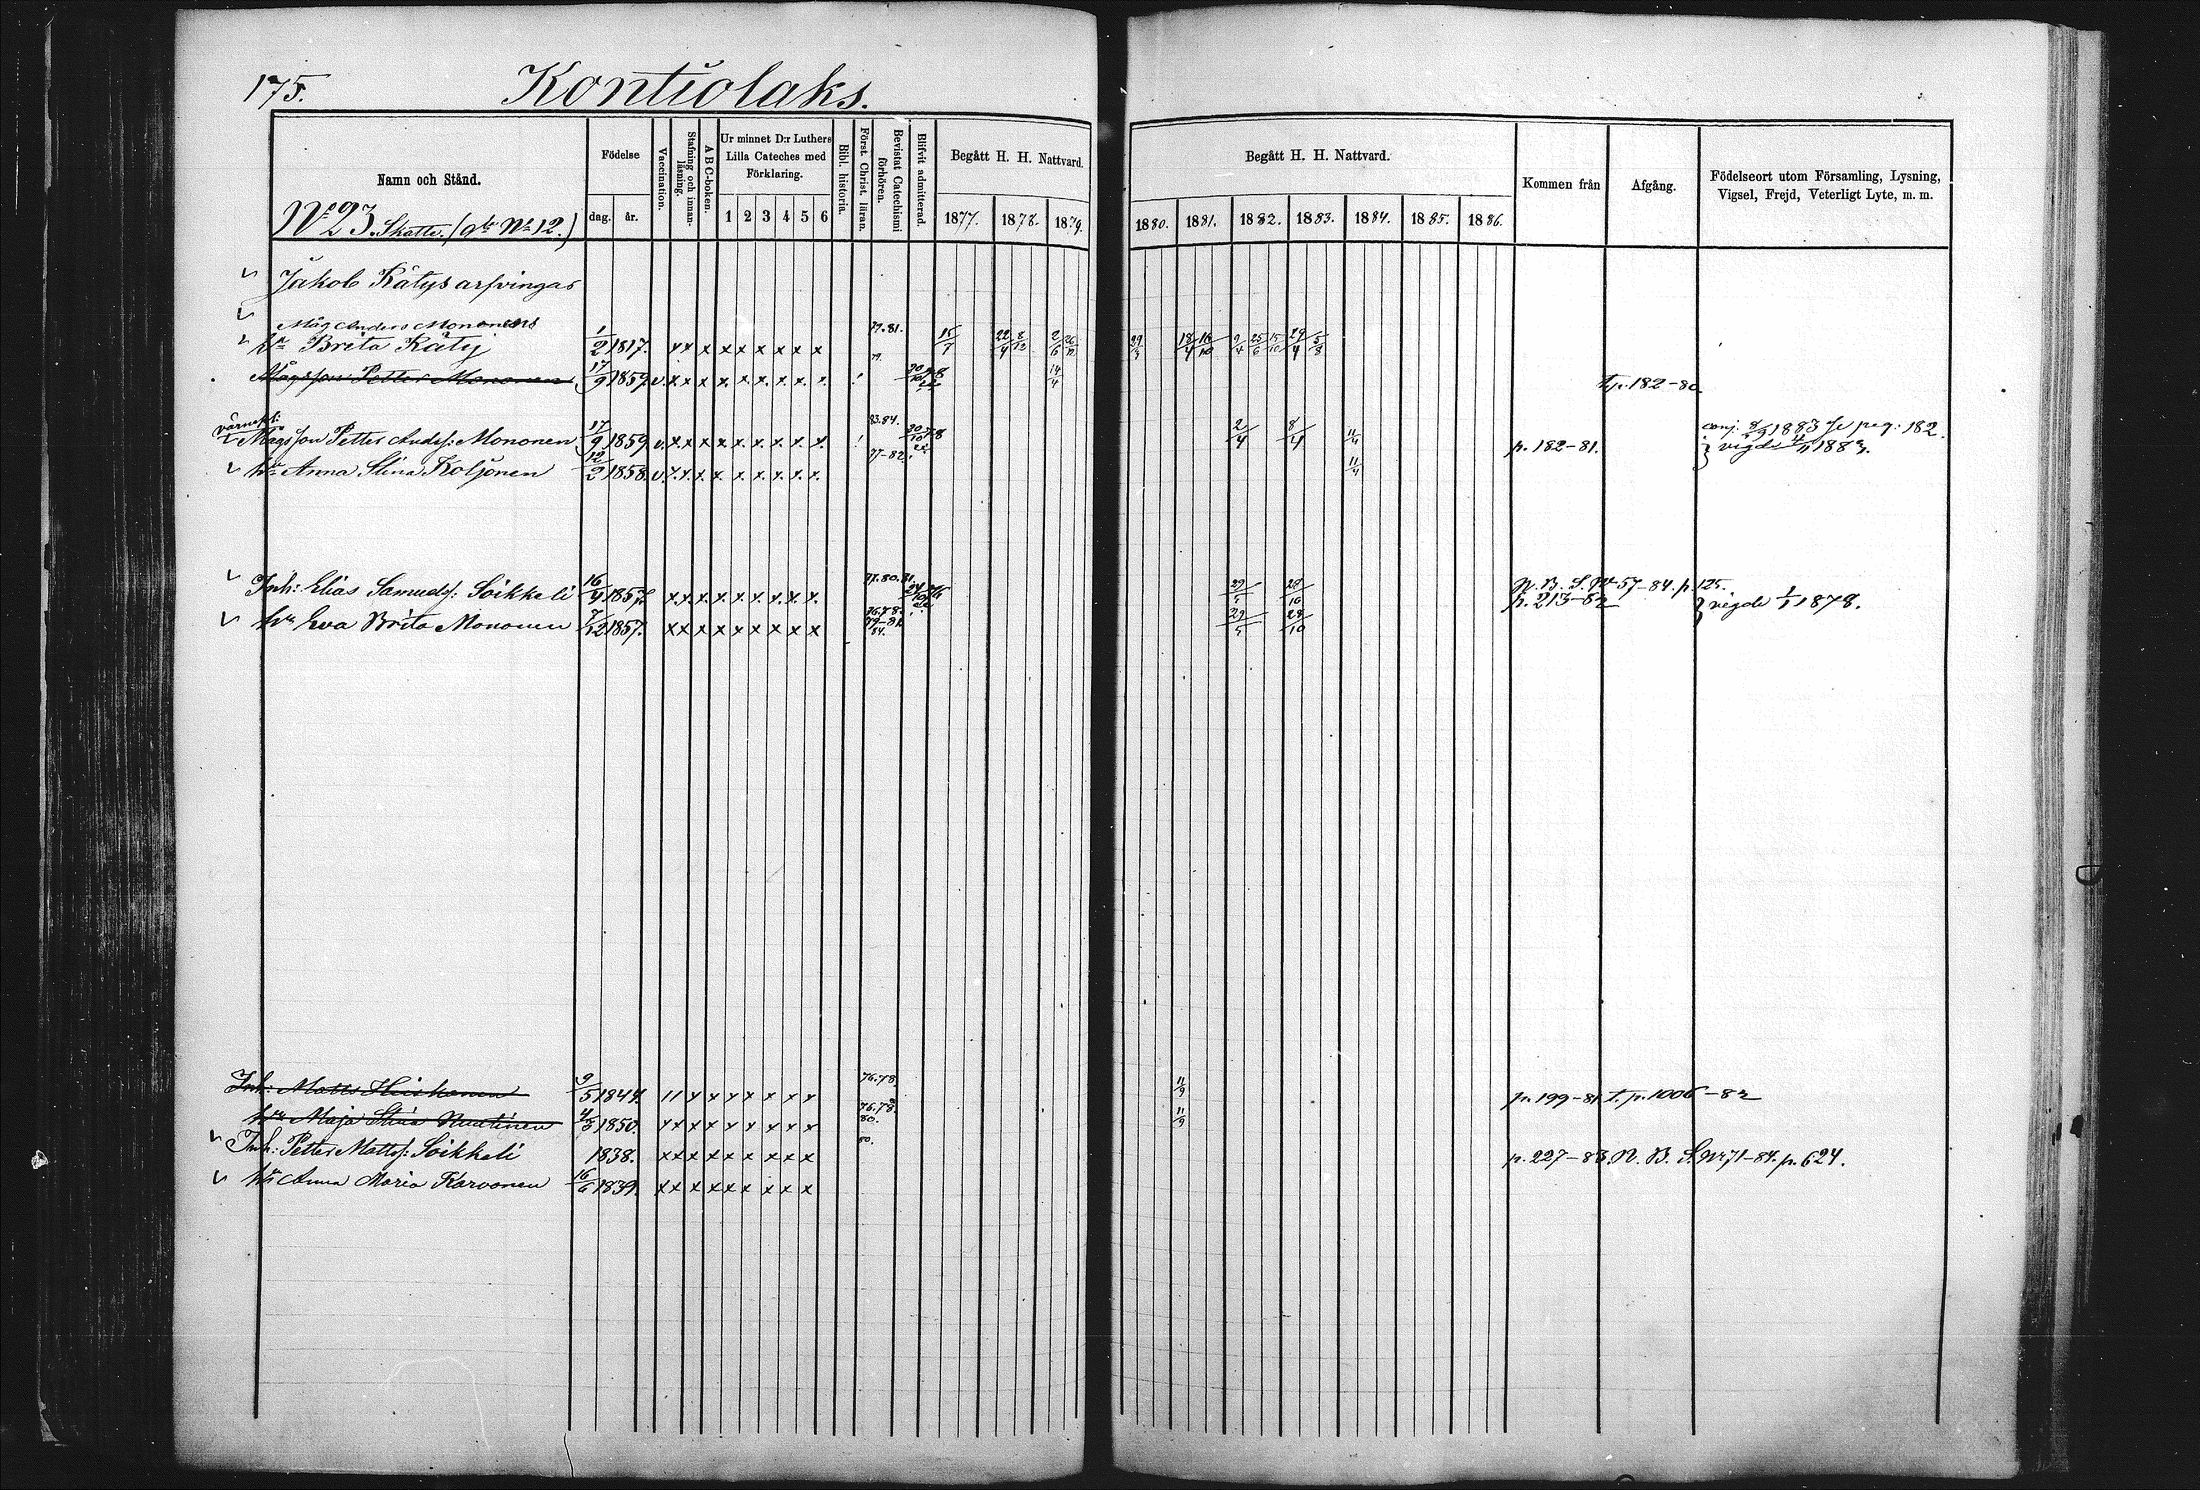 175. Kontiolaks.
Namn och Stånd.
Födelse
dag. år.
Vaccination.
Stafning och innanläsning.
A B C-boken.
Ur minnet D:r Luthers Lilla Cateches med Förklaring.
1 2 3 4 5 6
Bibl. historia.
Först. Christ. läran.
Bevistat Catechismi förhören.
Blifvit admitterad.
Begått H. H. Nattvard.
1877. 1878. 1879.
Begått H. H. Nattvard.
1880. 1881. 1882. 1883. 1884. 1885. 1886.
Kommen från
Afgång.
Födelseort utom Församling, Lysning, Vigsel, Frejd, Veterligt Lyte, m. m.
No 23. Skatte. (gle No 12.)
Jakob Kätys arfvingar
Måg Anders Mononens
hu Brita Käty 1/2 1817. x x x x x x x x x 77.81. 15/7 22/4 2/6 29/4 18/4 16/10 9/4 25/6 15/10 29/4 5/8
Mågsson Petter Mononen 17/9 1859. v. x x x x x x x x x ! 79. 20/10 78 14/4 t. p. 182-80
värnepl:
Mågsson Petter Andsf: Mononen 17/9 1859. v. x x x x x x x x x ! 83.84. 20/10 78 2/4 8/4 11/4 p. 182-81. conj. 8/9 1883 se pag: 182.
hu Anna Stina Koljonen 12/2 1858. v. x x x x x x x x x 77-82. 11/4 vigde 4/11 1883.
Inh: Elias Samuelsf: Soikkeli 16/4 1857. x x x x x x x x x 77.80.81. 29/5 28/10 N. B. S. No 57-84. p. 125.
p. 213-82 vigde 1/1 1878.
hu Eva Brita Mononen 7/12 1857. x x x x x x x x x 76.78. 79-81. 84. 29/5 28/10
Inh: Matts Hirvonen 9/5 1844. 11 x x x x x x x 76.78. 11/9 p. 199-81 t. p. 1006-82
hu Maja Stina Nuutinen 4/5 1850. x x x x x x x x x 76.78. 80. 11/9
Inh: Petter Mattsf: Soikkeli 1838. x x x x x x x x x 80. p. 227-83. N. B. S. No 71-84. p. 624.
hu Anna Maria Karvonen 16/6 1839. x x x x x x x x x